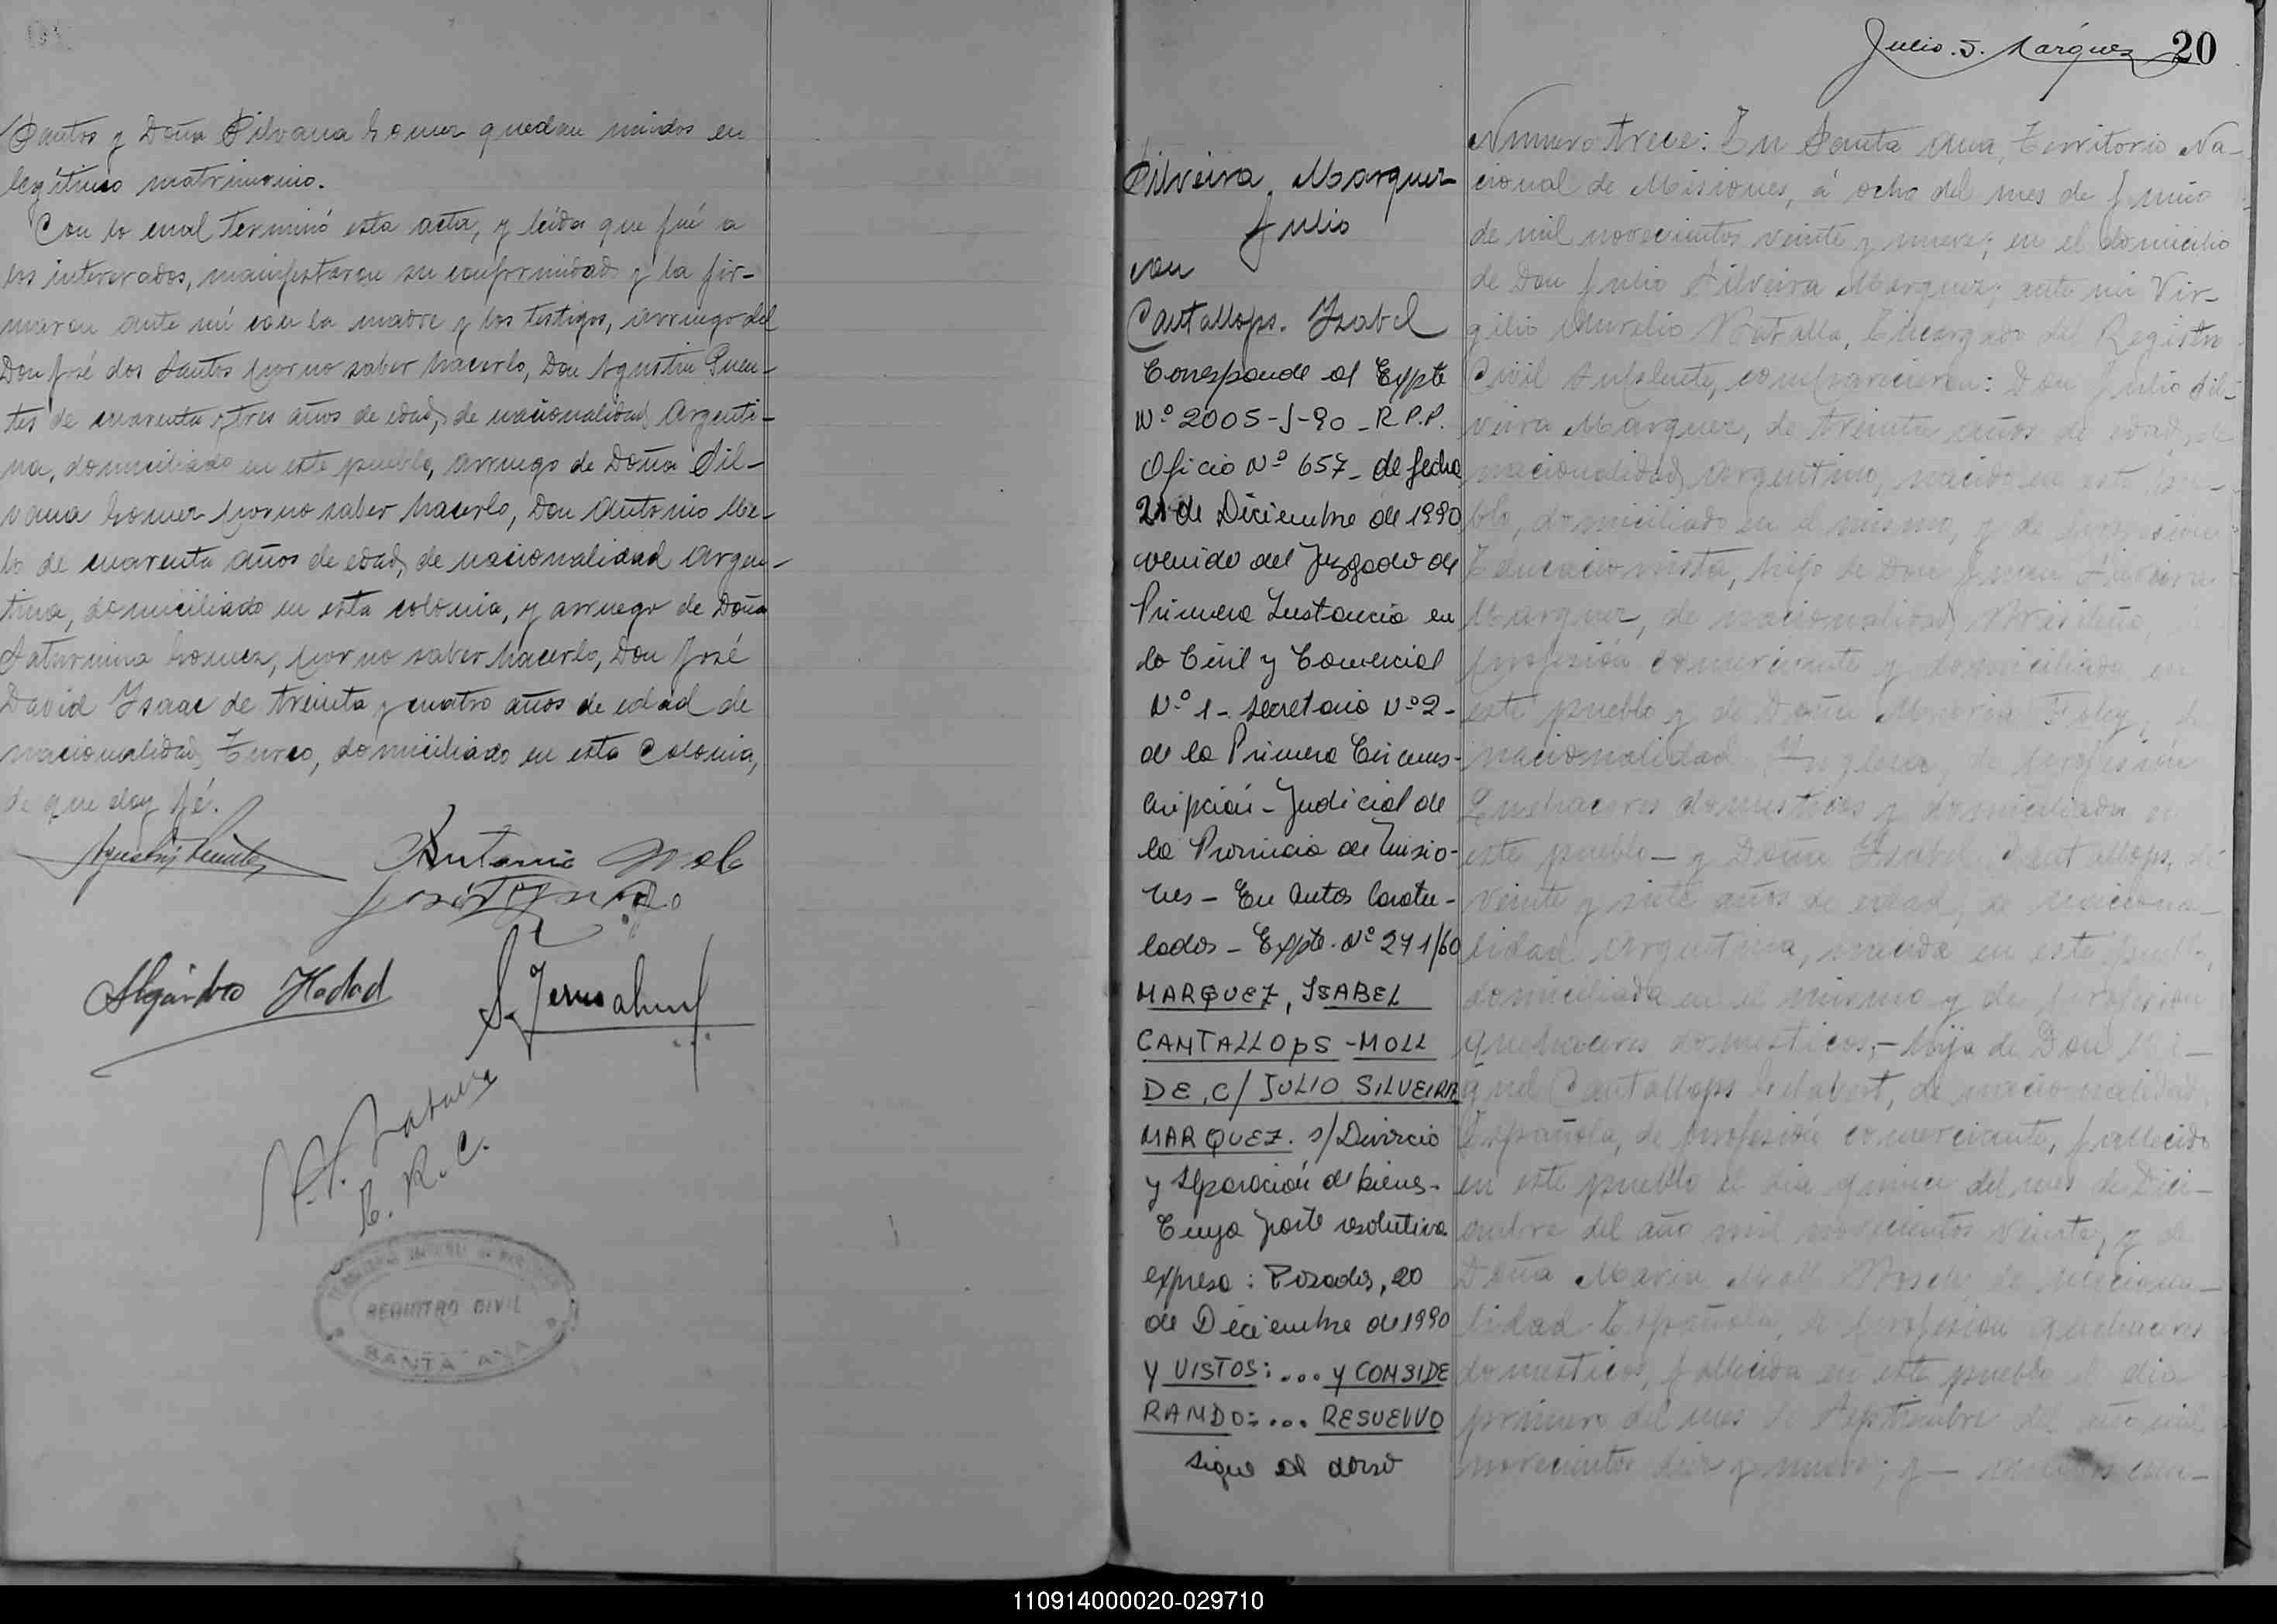 Santos y Doña Silvana Gomez quedan unidos en
legítimo matrimonio.
Con lo cual terminó esta acta, y leída que fué a
los interesados, manifestaron su conformidad y la fir-
maron ante mí con la madre y los testigos, arruego del
Don José dos Santos por no saber hacerlo, Don Agustin Puen-
tes de cuarenta y tres años de edad, de nacionalidad Argenti-
na, domiciliado en este pueblo, arruego de Doña Sil-
vana Gomez por no saber hacerlo, Don Antonio Me-
lo de cuarenta años de edad, de nacionalidad Argen-
tina, domiciliado en esta colonia, y arruego de Doña
Saturnina Gomez, por no saber hacerlo, Don José
David Ysaac de treinta y cuatro años de edad de
nacionalidad Turco, domiciliado en esta Colonia,
de que doy fé.
Antonio Melo
Hadad
E. R. C.
REGISTRO CIVIL
SANTA ANA
Julio S. Márquez 20
Silveira Marquez
Julio
con
Cantallops. Ysabel
Corresponde al Expte
Nº 2005-J-90 - R.P.P.
Oficio Nº 657 - de fecha
21 de Diciembre de 1990
venido del Juzgado de
Primera Instancia en
lo Civil y Comercial
Nº 1 - Secretaria Nº 2 -
de la Primera Circuns-
cripción - Judicial de
la Provincia de Misio-
nes - En Autos Caratu-
lados - Expte. Nº 271/60
MARQUEZ, ISABEL
CANTALLOPS - MOLL
DE, C/ JULIO SILVEIRA
MARQUEZ. s/ Divorcio
y Separación de bienes -
Cuya parte resolutiva
expresa: Posadas, 20
de Diciembre de 1990
Y VISTOS: ... Y CONSIDE
RANDO: ... RESUELVO
sigue al dorso
Numero trece: En Santa Ana, Territorio Na-
cional de Misiones, á ocho del mes de Junio
de mil novecientos veinte y nueve; en el domicilio
de Don Julio Silveira Marquez; ante mi Vir-
gilio Aurelio Batalla, Encargado del Registro
Civil Suplente, comparecieron: Don Julio Sil-
veira Marquez, de treinta años de edad, de
nacionalidad Argentino, nacido en este pue-
blo, domiciliado en el mismo, y de profesion
Educacionista, hijo de Don Juan Silveira
Marquez, de nacionalidad Brasileño,
profesión comerciante y domiciliado en
este pueblo y de Doña Maria Foley, de
nacionalidad Inglesa, de profesión
Quehaceres domesticos y domiciliada en
este pueblo — y Doña Ysabel Cantallops, de
veinte y siete años de edad, de naciona-
lidad Argentina, nacida en este pueblo,
domiciliada en el mismo y de profesion
quehaceres domesticos, - hija de Don Mi-
guel Cantallops Gelabert, de nacionalidad
Española, de profesión comerciante, fallecido
en este pueblo el dia quince del mes de Dici-
embre del año mil novecientos veinte, y de
Doña Maria Moll Bosch, de naciona-
lidad Española, de profesion quehaceres
domesticos, fallecida en este pueblo el dia
primero del mes de Septiembre del año mil
novecientos diez y nueve; y —
110914000020-029710